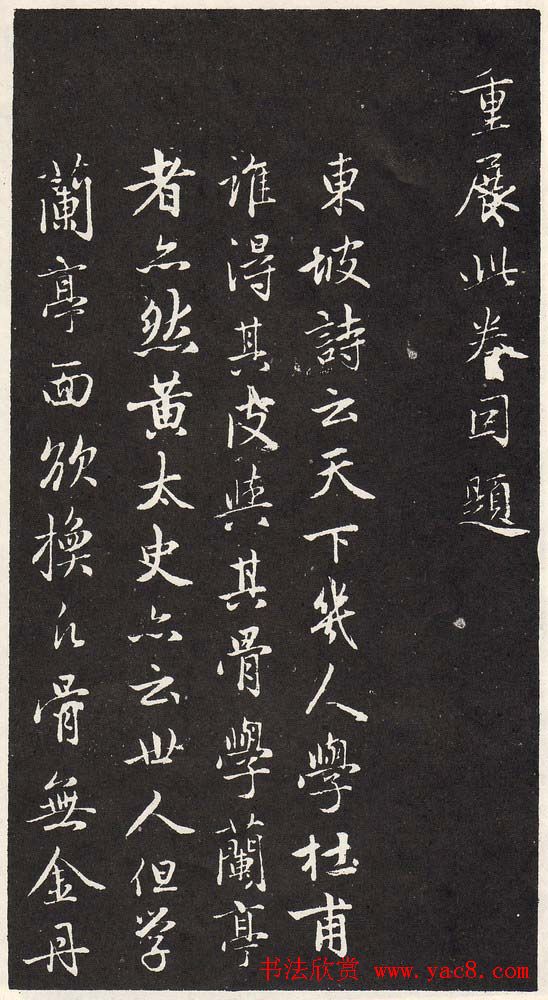 重展此卷因題
東坡詩云天下幾人學杜甫
誰得其皮與其骨學蘭亭
者亦然黄太史亦云世人但学
蘭亭面欲換凡骨無金丹
书法欣赏 www.yac8.com